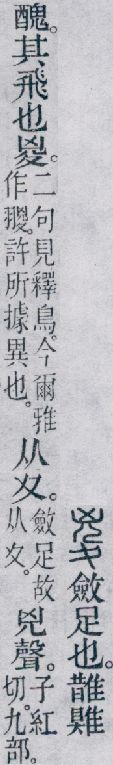 㚇斂足也。䧿
醜。其飛也㚇。二句見釋鳥。今爾雅作翪。許所據異也。从夊。斂足故从夊。兇聲。子紅切。九部。